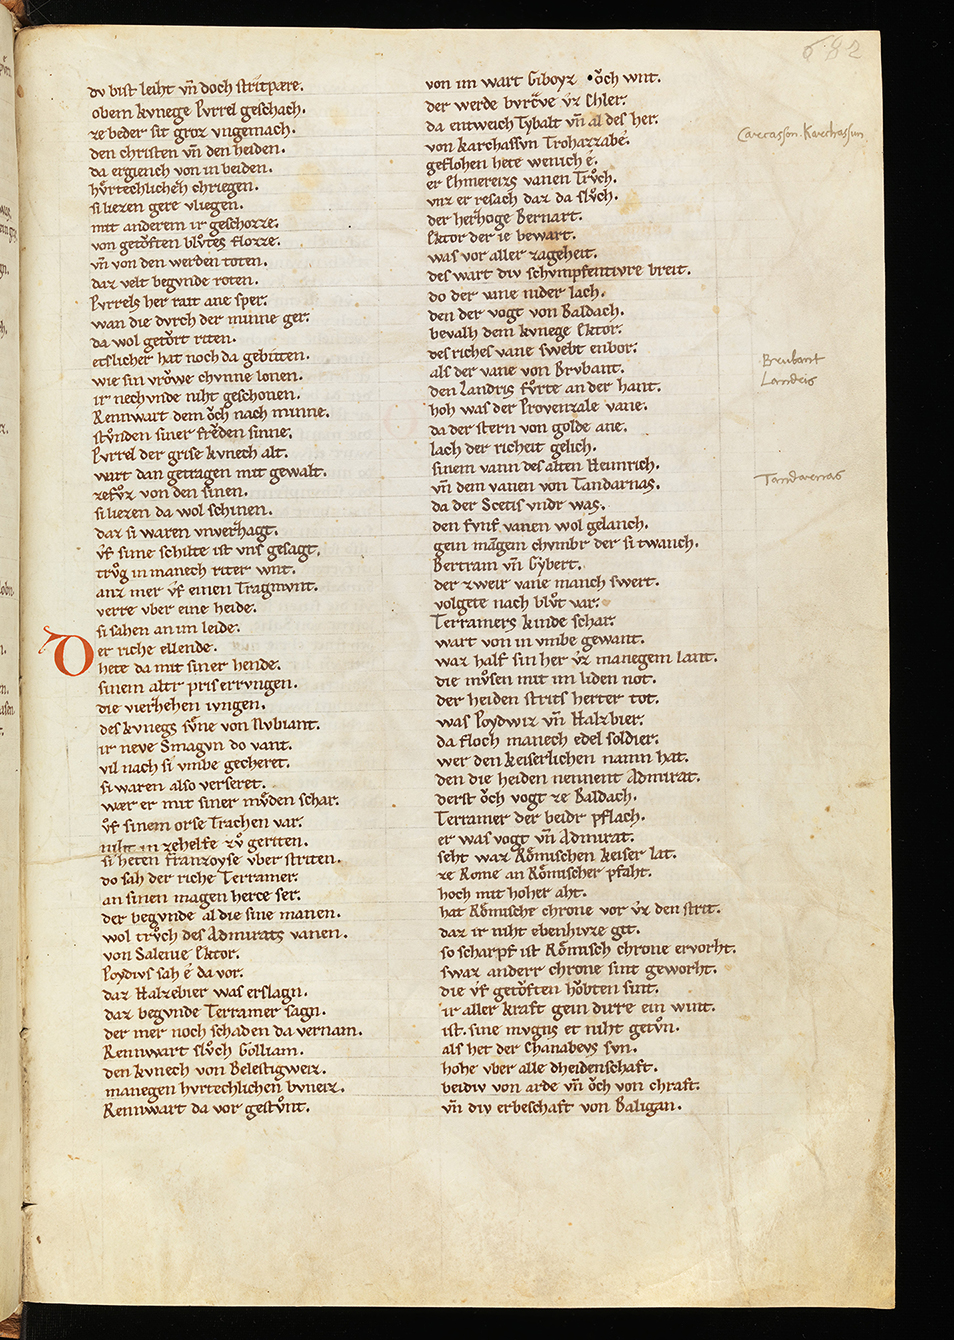 682
dv bist leiht vn̄ doch stritpære.
obem kvnege Pvrrel geschach.
ze beder sit groz vngemach.
den christen vn̄ den heiden.
da ergiench von in beiden.
hvrtechlichen chriegen.
si liezen gere vliegen.
mit anderem ir geschozze.
von getoͮften blvͦtes flozze.
vn̄ von den werden toten.
daz velt begvnde roten.
Pvrrels her rait ane sper.
wan die dvrch der minne ger.
da wol getoͮrt riten.
etslicher hat noch da gebitten.
wie sin vroͮwe chvnne lonen.
ir nechvnde niht geschonen.
Rennwart dem oͮch nach minne.
stvͦnden siner freͮden sinne.
Pvrrel der grise kvnech alt.
wart dan getragen mit gewalt.
zefvͦz von den sinen.
si liezen da wol schinen.
daz si waren vnverzhagt.
vf sime schilte ist vns gesagt.
trvͦg in manech riter wnt.
anz mer vf einen Tragmvnt.
verre vber eine heide.
si sahen an im leide.
Der riche ellende.
hete da mit siner hende.
sinem altr pris errvngen.
die vierzhehen ivngen.
des kvnegs svͤne von Nvbiant.
ir neve Smagvn do vant.
vil nach si vmbe gecheret.
si waren also verseret.
wær er mit siner mvͤden schar.
vf sinem orse Trachen var.
niht in zehelfe zvͦ geriten.
si heten franzoyse vber striten.
do sah der riche Terramer.
an sinen magen herce ser.
der begvnde al die sine manen.
wol trvͦch des Admirats vanen.
von Salenie Ektor.
Poydivs sah é da vor.
daz Halzebier was erslagn.
daz begvnde Terramer sagn.
der mer noch schaden da vernam.
Rennwart slvͦch Golliam.
den kvnech von Belestigweiz.
manegen hvrtechlichen bvneiz.
Rennwart da vor gestvͦnt.
von im wart Giboyz oͮch wnt.
der werde bvrgrave vz Chler.
da entweich Tybalt vn̄ al des her.
von karchassvn Trohazzabé.
geflohen hete wenich é.
er Ehmereizs vanen Trvͦch.
vnz er resach daz da slvͦch.
der herzhoge Bernart.
Ektor der ie bewart.
was vor aller zageheit.
des wart div schvmpfentivre breit.
do der vane nider lach.
den der vogt von Baldach.
bevalh dem kvnege Ektor.
des riches vane swebt enbor.
als der vane von Brvbant.
den Landris fvͦrte an der hant.
hoh was der Provenzale vane.
da der stern von golde ane.
lach der richeit gelich.
sinem vann des alten Heimrich.
vn̄ dem vanen von Tandarnas.
da der Scetis vndr was.
den fvnf vanen wol gelanch.
gein mangem chvmbr der si twanch.
Bertram vn̄ Gybert.
der zweir vane manch swert.
volgete nach blvͦt var.
Terramers kinde schar.
wart von in vmbe gewant.
waz half sin her vz manegem lant.
die mvͦsen mit im liden not.
der heiden strits herter tot.
was Poydwiz vn̄ Halzbier.
da floch manech edel soldier.
wer den keiserlichen namn hat.
den die heiden nennent Admirat.
derst oͮch vogt ze Baldach.
Terramer der beidr pflach.
er was vogt vn̄ Admirat.
seht waz Roͤmischen keiser lat.
ze Rome an Roͤmischer pfaht.
hoch mit hoher aht.
hat Roͤmischr chrone vor vz den strit.
daz ir niht ebenhivze git.
so scharpf ist Roͤmisch chrone ervorht.
swaz anderr chrone sint geworht.
die vf getoͮften hoͮbten sint.
ir aller kraft gein dirre ein wint.
ist. sine mvgns et niht getvͦn.
als het der Chanabevs svn.
hohe vber alle dheidenschaft.
beidiv von arde vn̄ oͮch von chraft.
vn̄ div erbeschaft von Baligan.
Carcasson. Karchassun
Brubant
Landris
Tandarnas